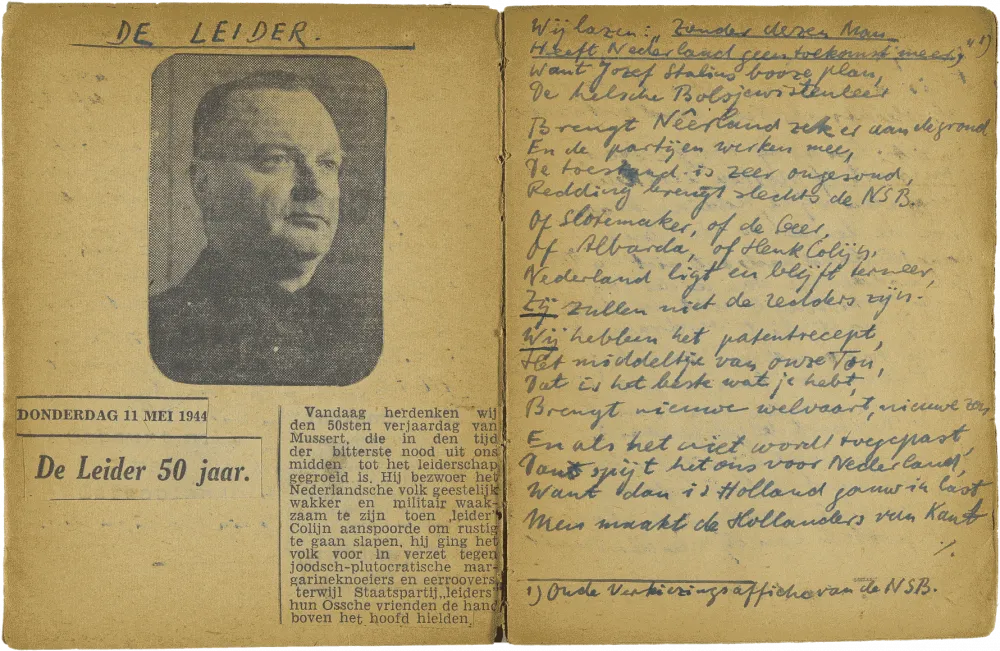 DE LEIDER.
DONDERDAG 11 MEI 1944
De Leider 50 jaar.
Vandaag herdenken wij
den 50sten verjaardag van
Mussert, die in den tijd
der bitterste nood uit ons
midden tot het leiderschap
gegroeid is. Hij bezwoer het
Nederlandsche volk geestelijk
wakker en militair waak-
zaam te zijn toen „leider”
Colijn aanspoorde om rustig
te gaan slapen, hij ging het
volk voor in verzet tegen
joodsch-plutocratische mar-
garineknoeiers en eerroovers
terwijl Staatspartij„leiders”
hun Ossche vrienden de hand
boven het hoofd hielden
Wij lazen: „Zonder dezen Man
Heeft Nederland geen toekomst meer,” 1)
Want Jozef Stalins booze plan,
De helsche Bolsjewistenleer
Brengt Nêerland zeker aan de grond
En de partijen werken mee,
De toestand is zeer ongezond,
Redding brengt slechts de NSB.
Of Slotemaker, of de Geer,
Of Albarda, of Henk Colijn,
Nederland ligt en blijft terneer,
Zij zullen niet de redders zijn.
Wij hebben het patentrecept,
Het middeltje van onze Ton,
Dat is het beste wat je hebt,
Brengt nieuwe welvaart, nieuwe zon
En als het niet wordt toegepast
Dan spijt het ons voor Nederland,
Want dan is Holland gauw in last
Men maakt de Hollanders van Kant
./.
1) Oude Verkiezingsaffiche van de NSB.